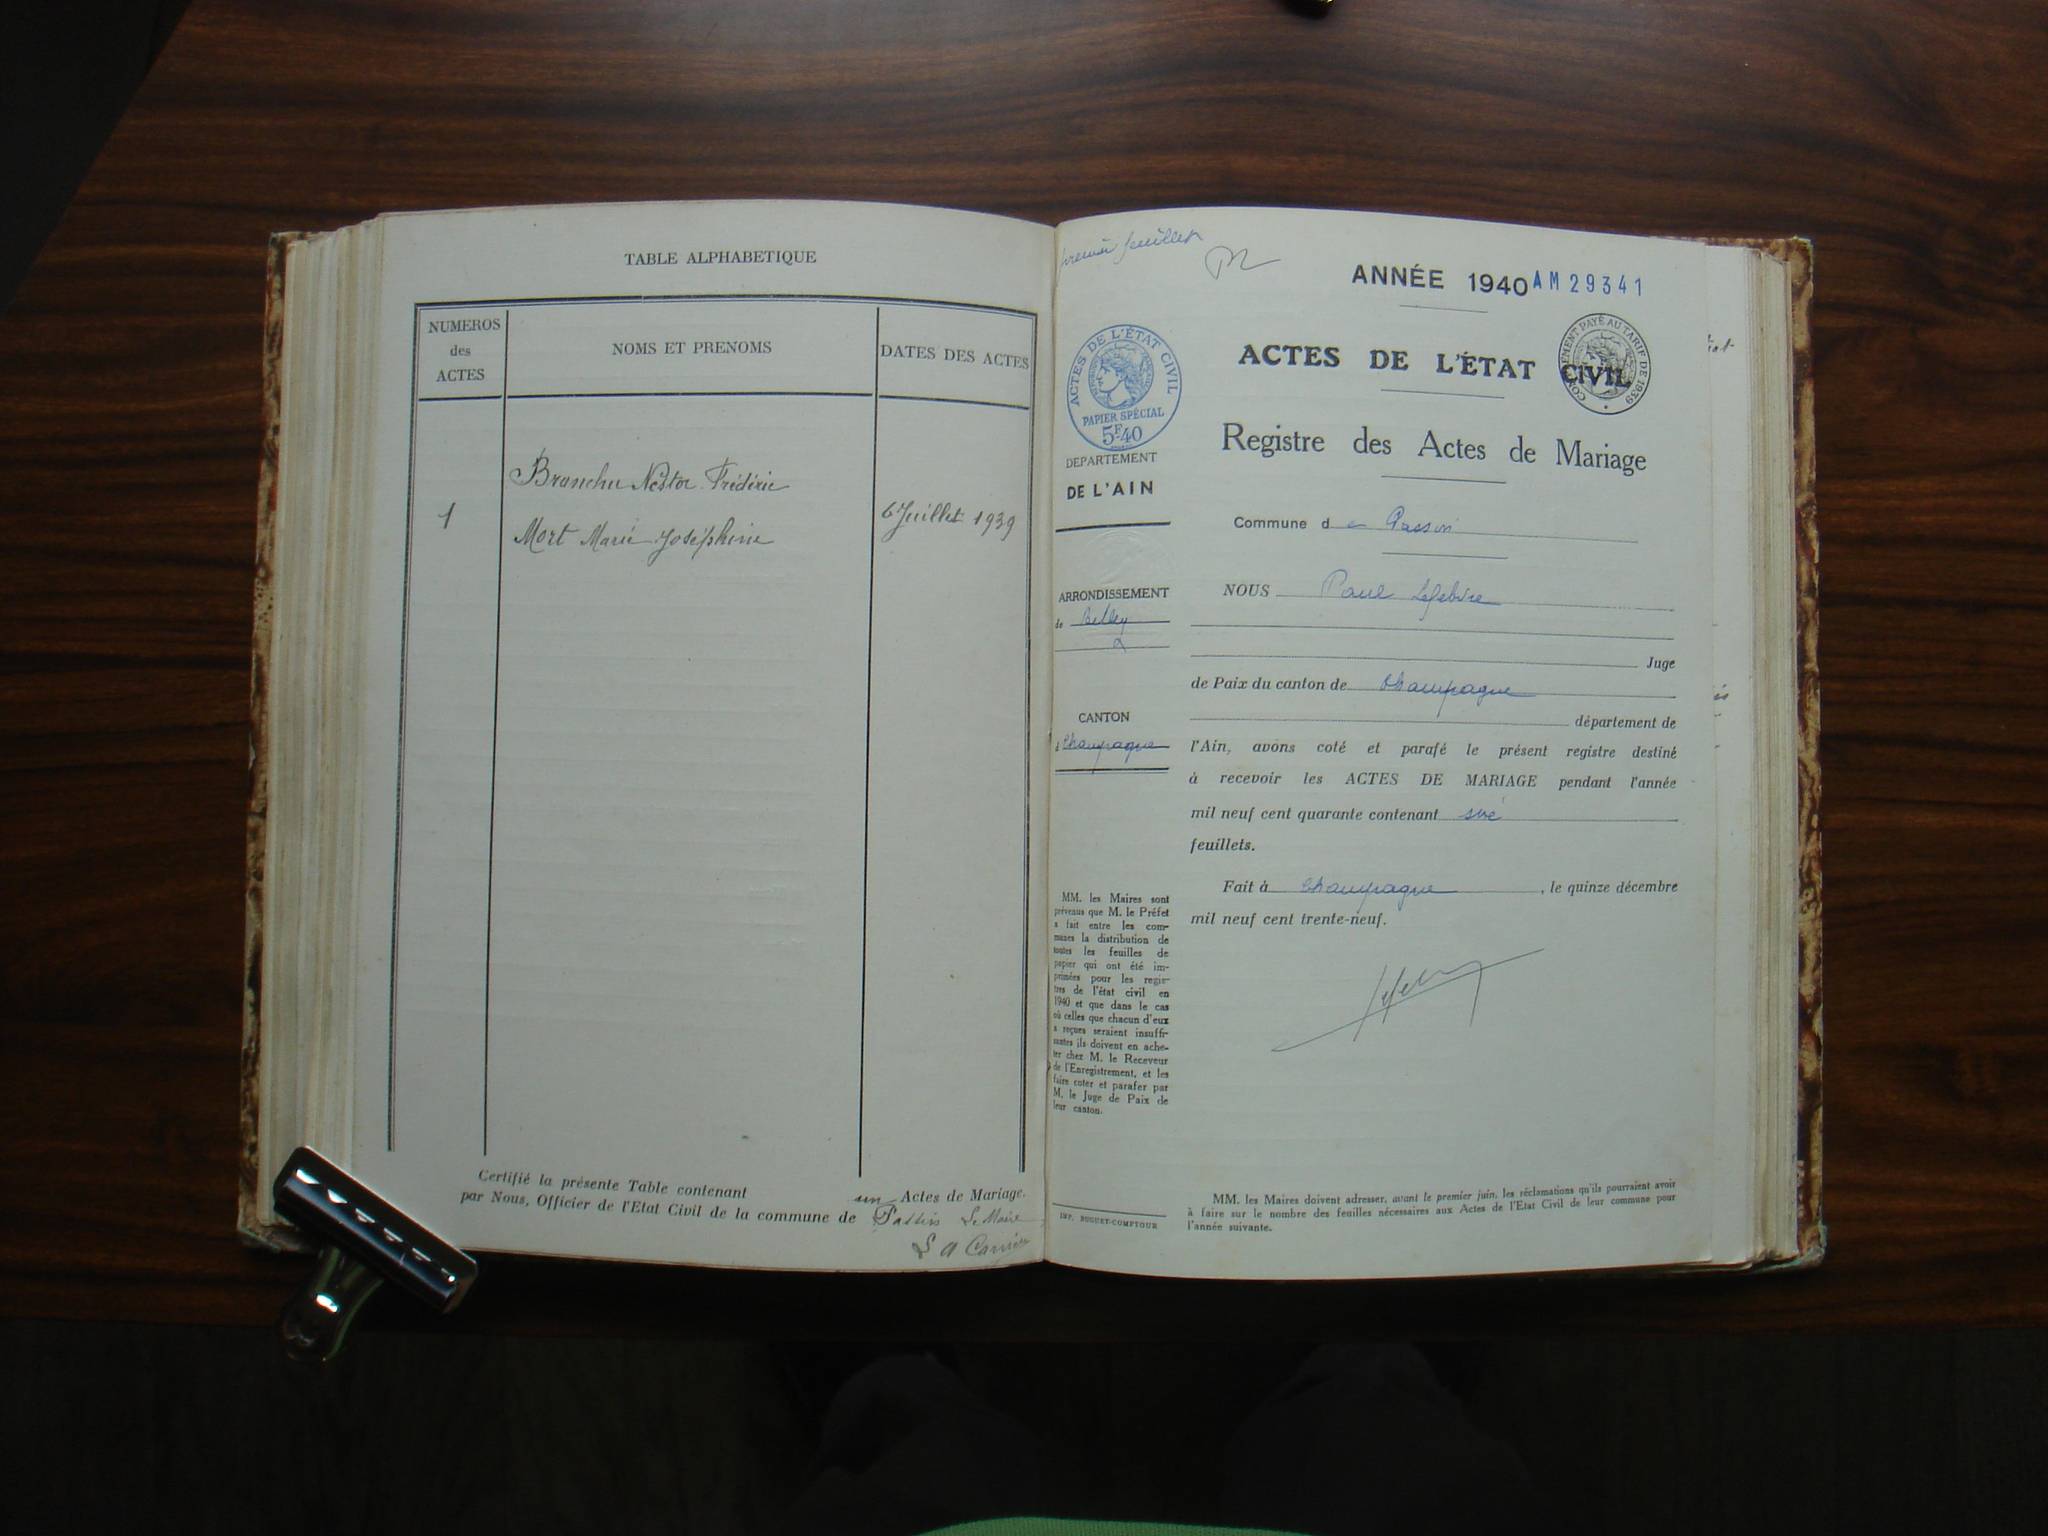 TABLE ALPHABETIQUE
NUMEROS
des
ACTES
NOMS ET PRENOMS
DATES DES ACTES
Branchu Nestor Frédéric
1
6 Juillet 1939
Mort Marie Joséphine
Certifié la présente Table contenant un Actes de Mariage.
par Nous, Officier de l'Etat Civil de la commune de Passin Le Maire
premier feuillet
ANNÉE 1940 AM29341
ACTES DE L'ÉTAT CIVIL
PAPIER SPÉCIAL
5F.40
PAYÉ AU TARIF DE 1939
ACTES DE L'ÉTAT CIVIL
Registre des Actes de Mariage
DEPARTEMENT
DE L'AIN
Commune de Passin
ARRONDISSEMENT
de Belley
NOUS Paul Lefebvre
Juge
de Paix du canton de Champagne
CANTON
Champagne
département de
l'Ain, avons coté et parafé le présent registre destiné
à recevoir les ACTES DE MARIAGE pendant l'année
mil neuf cent quarante contenant six
feuillets.
Fait à Champagne, le quinze décembre
mil neuf cent trente-neuf.
MM. les Maires sont
prévenus que M. le Préfet
a fait entre les com-
munes la distribution de
toutes les feuilles de
papier qui ont été im-
primées pour les regis-
tres de l'état civil en
1940 et que dans le cas
où celles que chacun d'eux
a reçues seraient insuffi-
santes ils doivent en ache-
ter chez M. le Receveur
de l'Enregistrement, et les
faire coter et parafer par
M. le Juge de Paix de
leur canton.
IMP. BUGUET-COMPTOUR
MM. les Maires doivent adresser, avant le premier juin, les réclamations qu'ils pourraient avoir
à faire sur le nombre des feuilles nécessaires aux Actes de l'Etat Civil de leur commune pour
l'année suivante.